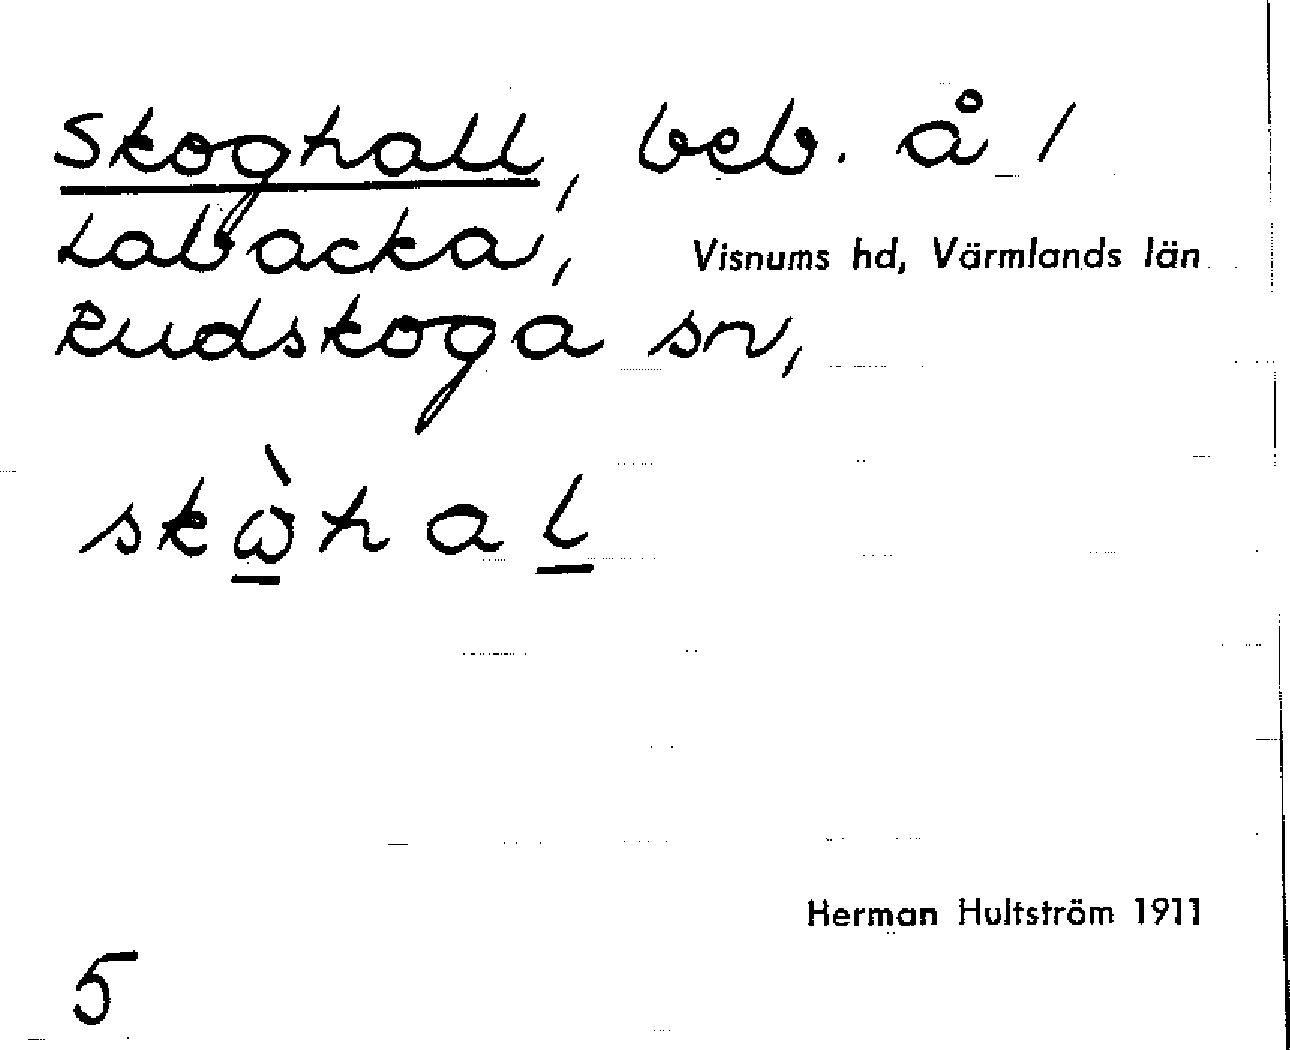 Skoghall, beb. å /
Labacka, Visnums hd, Värmlands län
Rudskoga sn,
skὼhal
Herman Hultström 1911
5